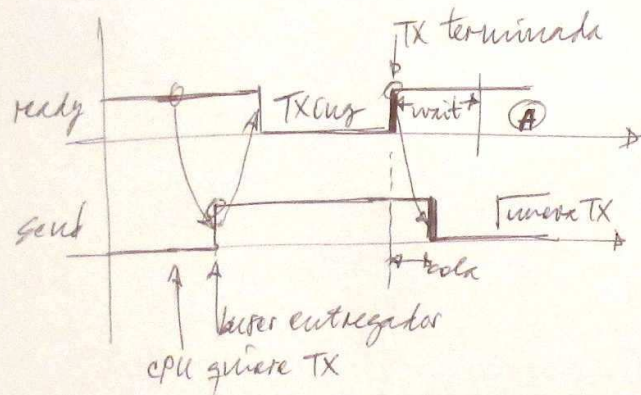 TX terminada
ready
TXing
wait
A
send
nueva TX
cola
buffer entregador
CPU quiere TX